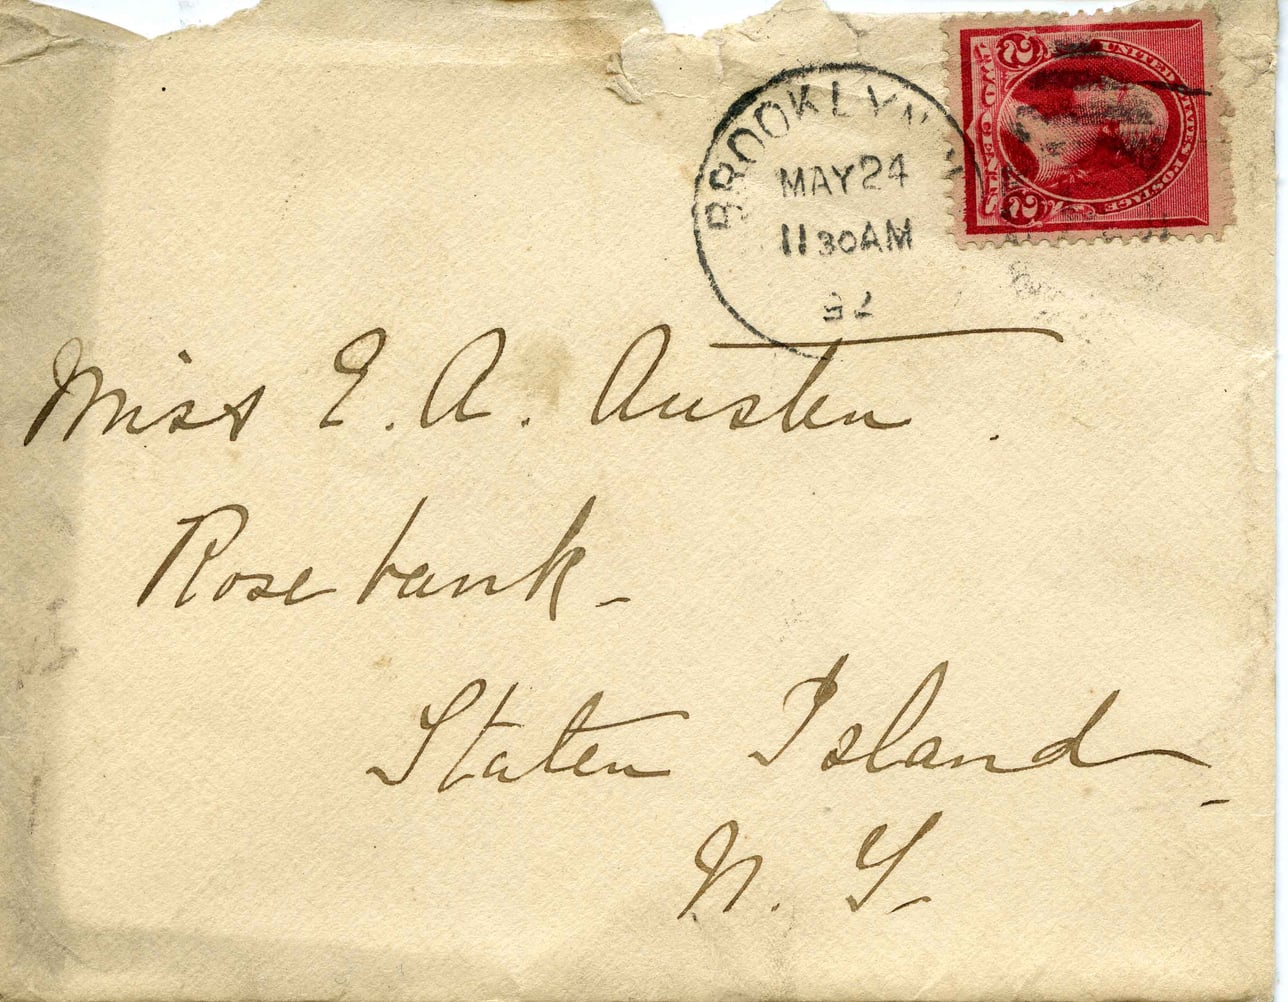 BROOKLYN
MAY 24
11 30 AM
92
UNITED STATES POSTAGE
2 2
Miss E. A. Austen.
Rosebank -
Staten Island -
N. Y.